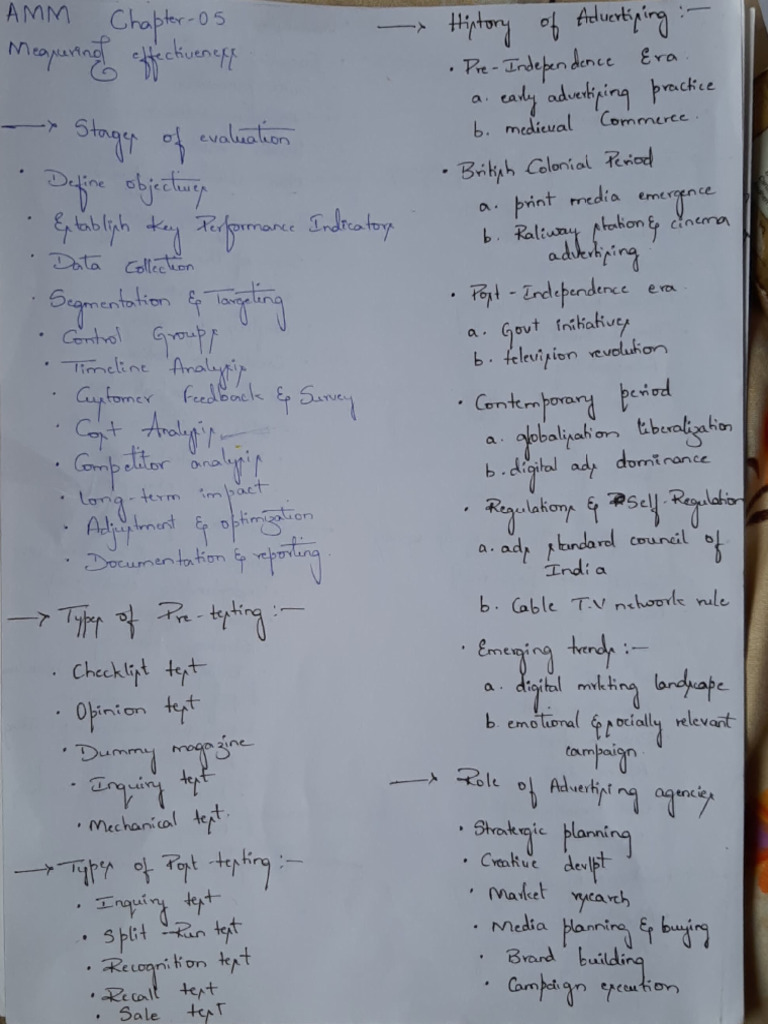 AMM Chapter-05
Measuring effectiveness
→ Stages of evaluation
• Define objectives
• Establish Key Performance Indicators
• Data Collection
• Segmentation & Targeting
• Control Groups
• Timeline Analysis
• Customer Feedback & Survey
• Cost Analysis
• Competitor analysis
• Long-term impact
• Adjustment & optimization
• Documentation & reporting
→ Types of Pre-testing :-
• Checklist test
• Opinion test
• Dummy magazine
• Inquiry test
• Mechanical test.
→ Types of Post-testing :-
• Inquiry test
• Split-Run test
• Recognition test
• Recall test
• Sale test
→ History of Advertising :-
• Pre-Independence Era.
a. early advertising practice
b. medieval Commerce.
• British Colonial Period
a. print media emergence
b. Raliway station & cinema
advertising
• Post-Independence era
a. Govt initiatives
b. television revolution
• Contemporary period
a. globalisation liberalization
b. digital ads dominance
• Regulations & Self-Regulation
a. ads standard council of
India
b. Cable T.V network rule
• Emerging trends :-
a. digital mrkting landscape
b. emotional & socially relevant
campaign.
→ Role of Advertising agencies
• Stratergic planning
• Creative devlpt
• Market research
• Media planning & buying
• Brand building
• Campaign execution